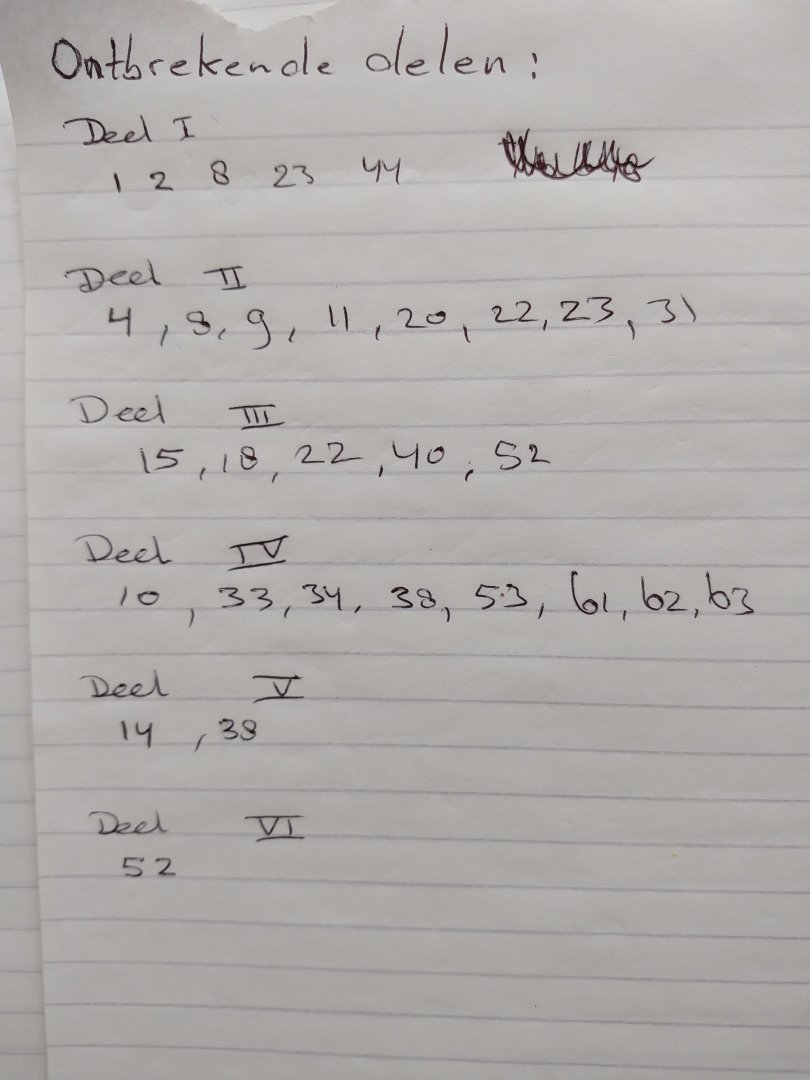 Ontbrekende delen :
Deel I
1 2 8 23 44
Deel II
4, 8, 9, 11, 20, 22, 23, 31
Deel III
15, 18, 22, 40, 52
Deel IV
10, 33, 34, 38, 53, 61, 62, 63
Deel V
14, 38
Deel VI
52